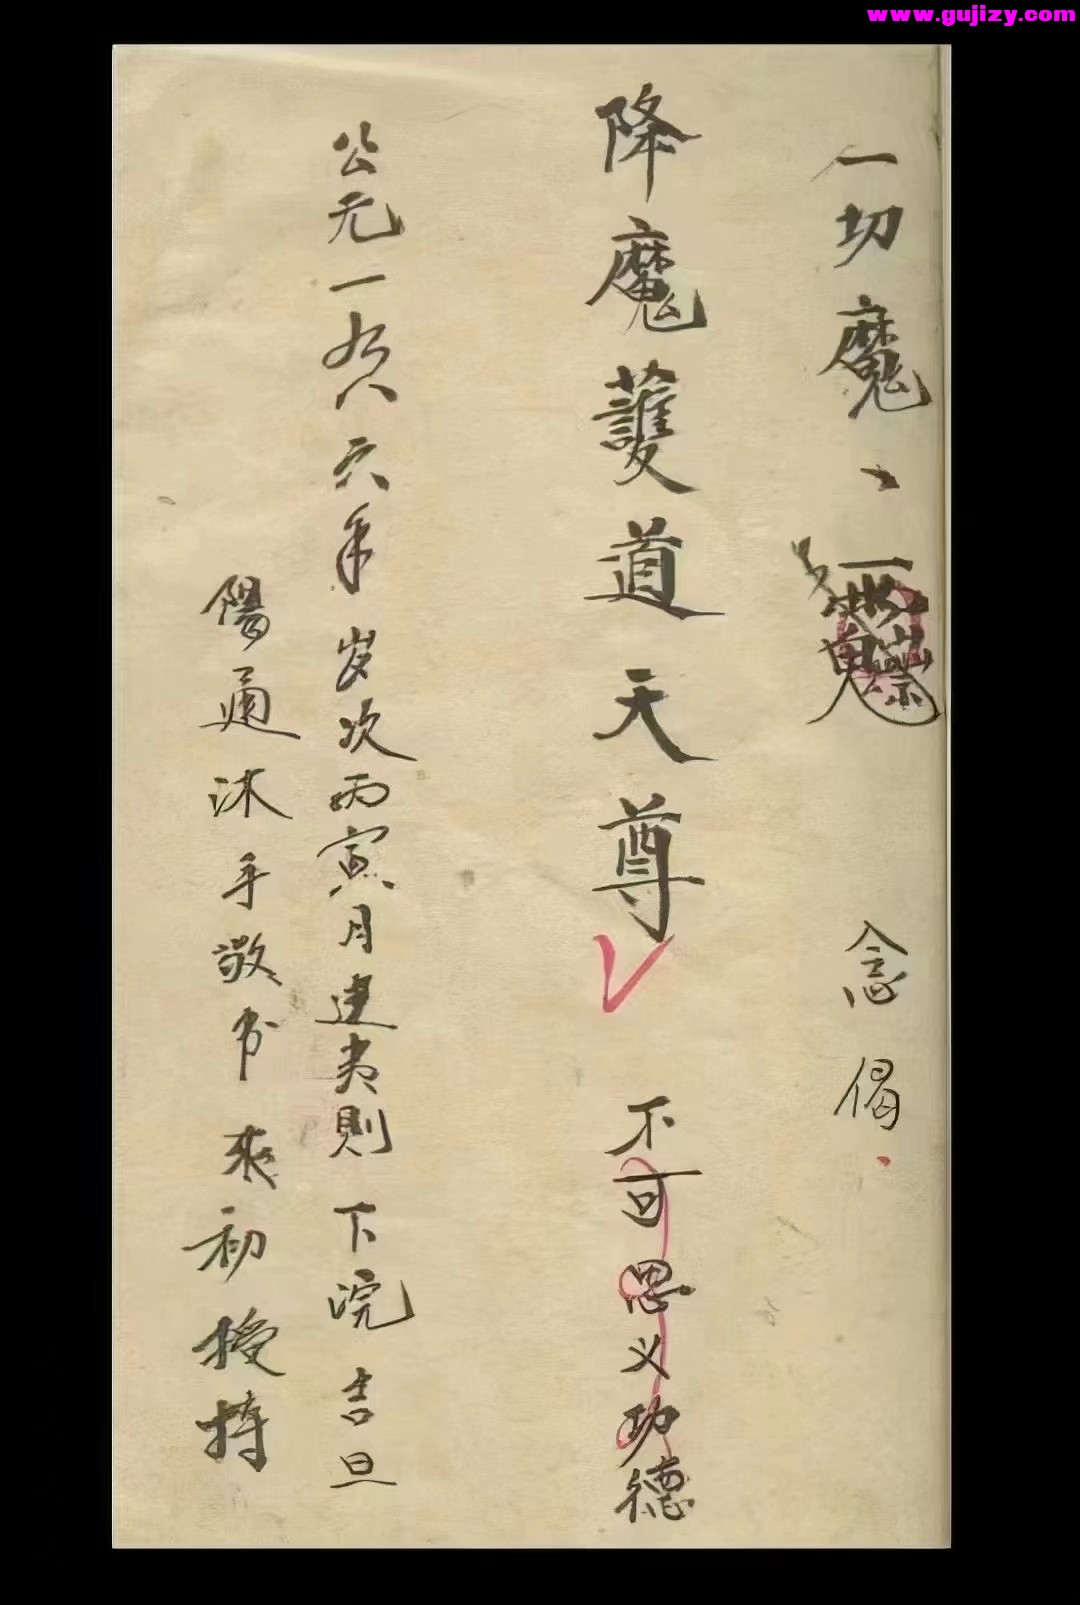 www.gujizy.com
一切魔丶 念偈
降魔護道天尊 不可思义功德
公元一九八六年岁次丙寅月建夷則下浣吉旦
陽通沐手敬书 來初授持